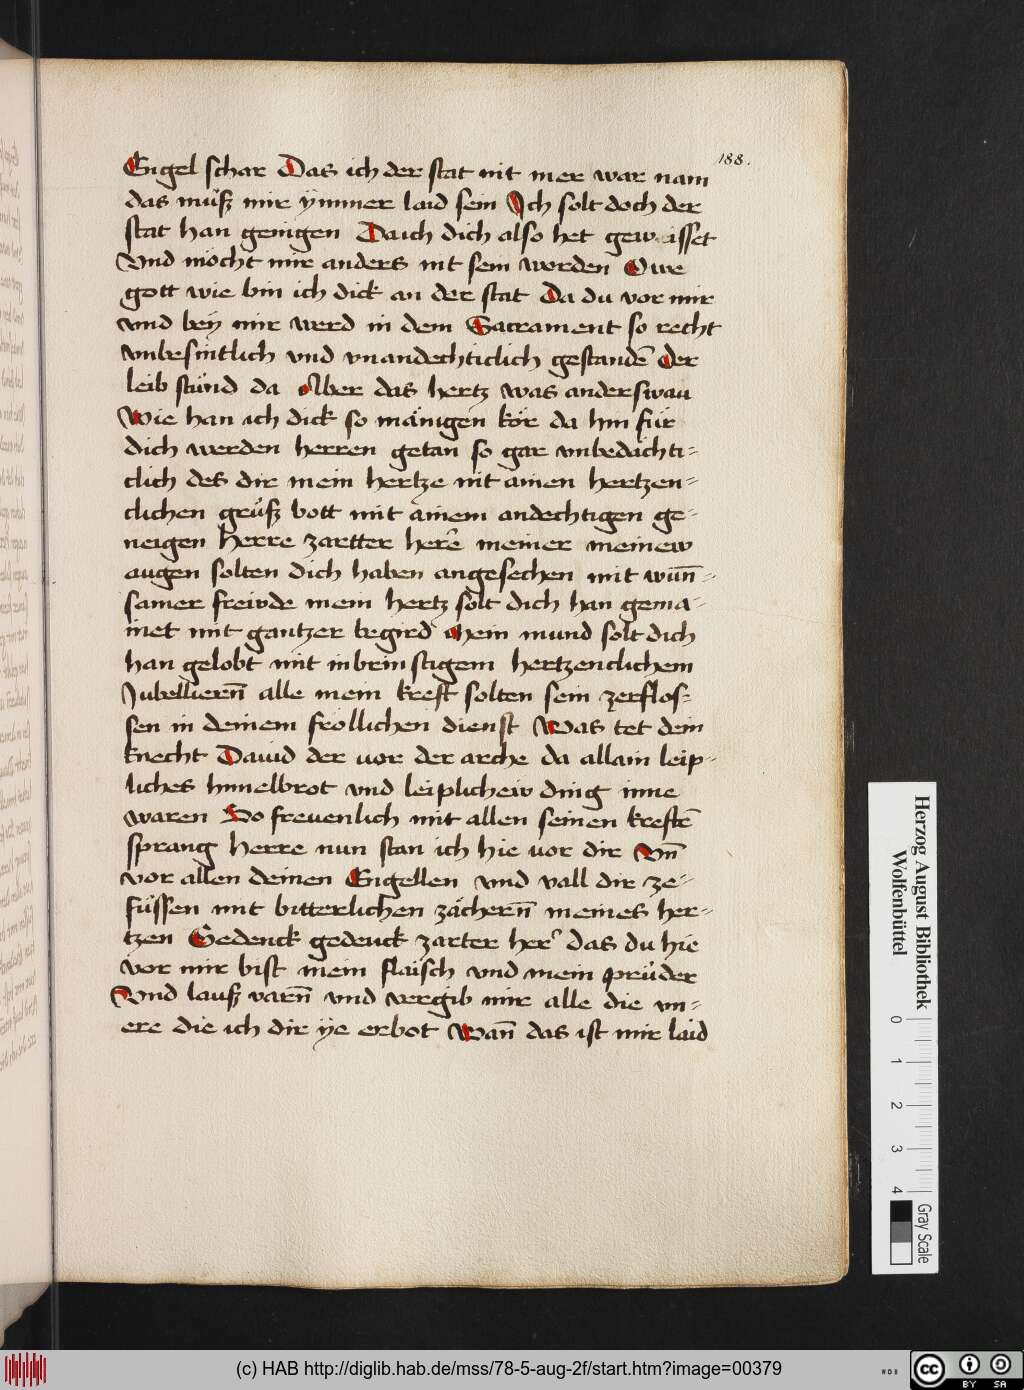 188.
Engel schar Das ich der stat nit mer war nam
das mu̇ß mir ym̄mer laid sein Ich solt doch der
stat han genigen Da ich dich also het gewisset
Vnd möcht mir anders nit sein worden Owe
gott wie bin ich dick an der stat Da du vor mir
vnd bey mir werd in dem Sacrament so recht
vnbesintlich vnd vnandechticlich gestandē Der
leib stu̇nd da Aber das hertz was anderswau
Wie han ich dick so mänigen kör da hin für
dich werden herren getan so gar vnbedächti-
clich des dir mein hertze nit ainen hertzen-
clichen gru̇ß bott mit ainem andechtigen ge-
neigen Herre zartter herē meiner meinew
augen solten dich haben angesechen mit wūn-
samer freiwde mein hertz solt dich han gema-
inet mit gantzer begird Mein mund solt dich
han gelobt mit inbrinstigem hertzenclichem
Jubelliern̄ alle mein kreft solten sein zerflos-
sen in deinem frölichen dienst Was tet dein
knecht Dauid der vor der arche da allain leip-
liches himelbrot vnd leiplichew ding inne
waren So frevenlich mit allen seinen kreftē
sprang Herre nun stan ich hie vor dir Vn̄
vor allen deinen Engellen vnd vall dir ze-
fu̇ssen mit bitterlichen zächern̄ meines her-
tzen Gedenck gedenck zarter her' das du hie
vor mir bist mein flaisch vnd mein pru̇der
Vnd lauß varn̄ vnd vergib mir alle die vn-
ere die ich dir ye erbot Wan̄ das ist mir laid
Herzog August Bibliothek
Wolfenbüttel
0 1 2 3 4
Gray Scale
(c) HAB http://diglib.hab.de/mss/78-5-aug-2f/start.htm?image=00379
WDB
CC BY SA